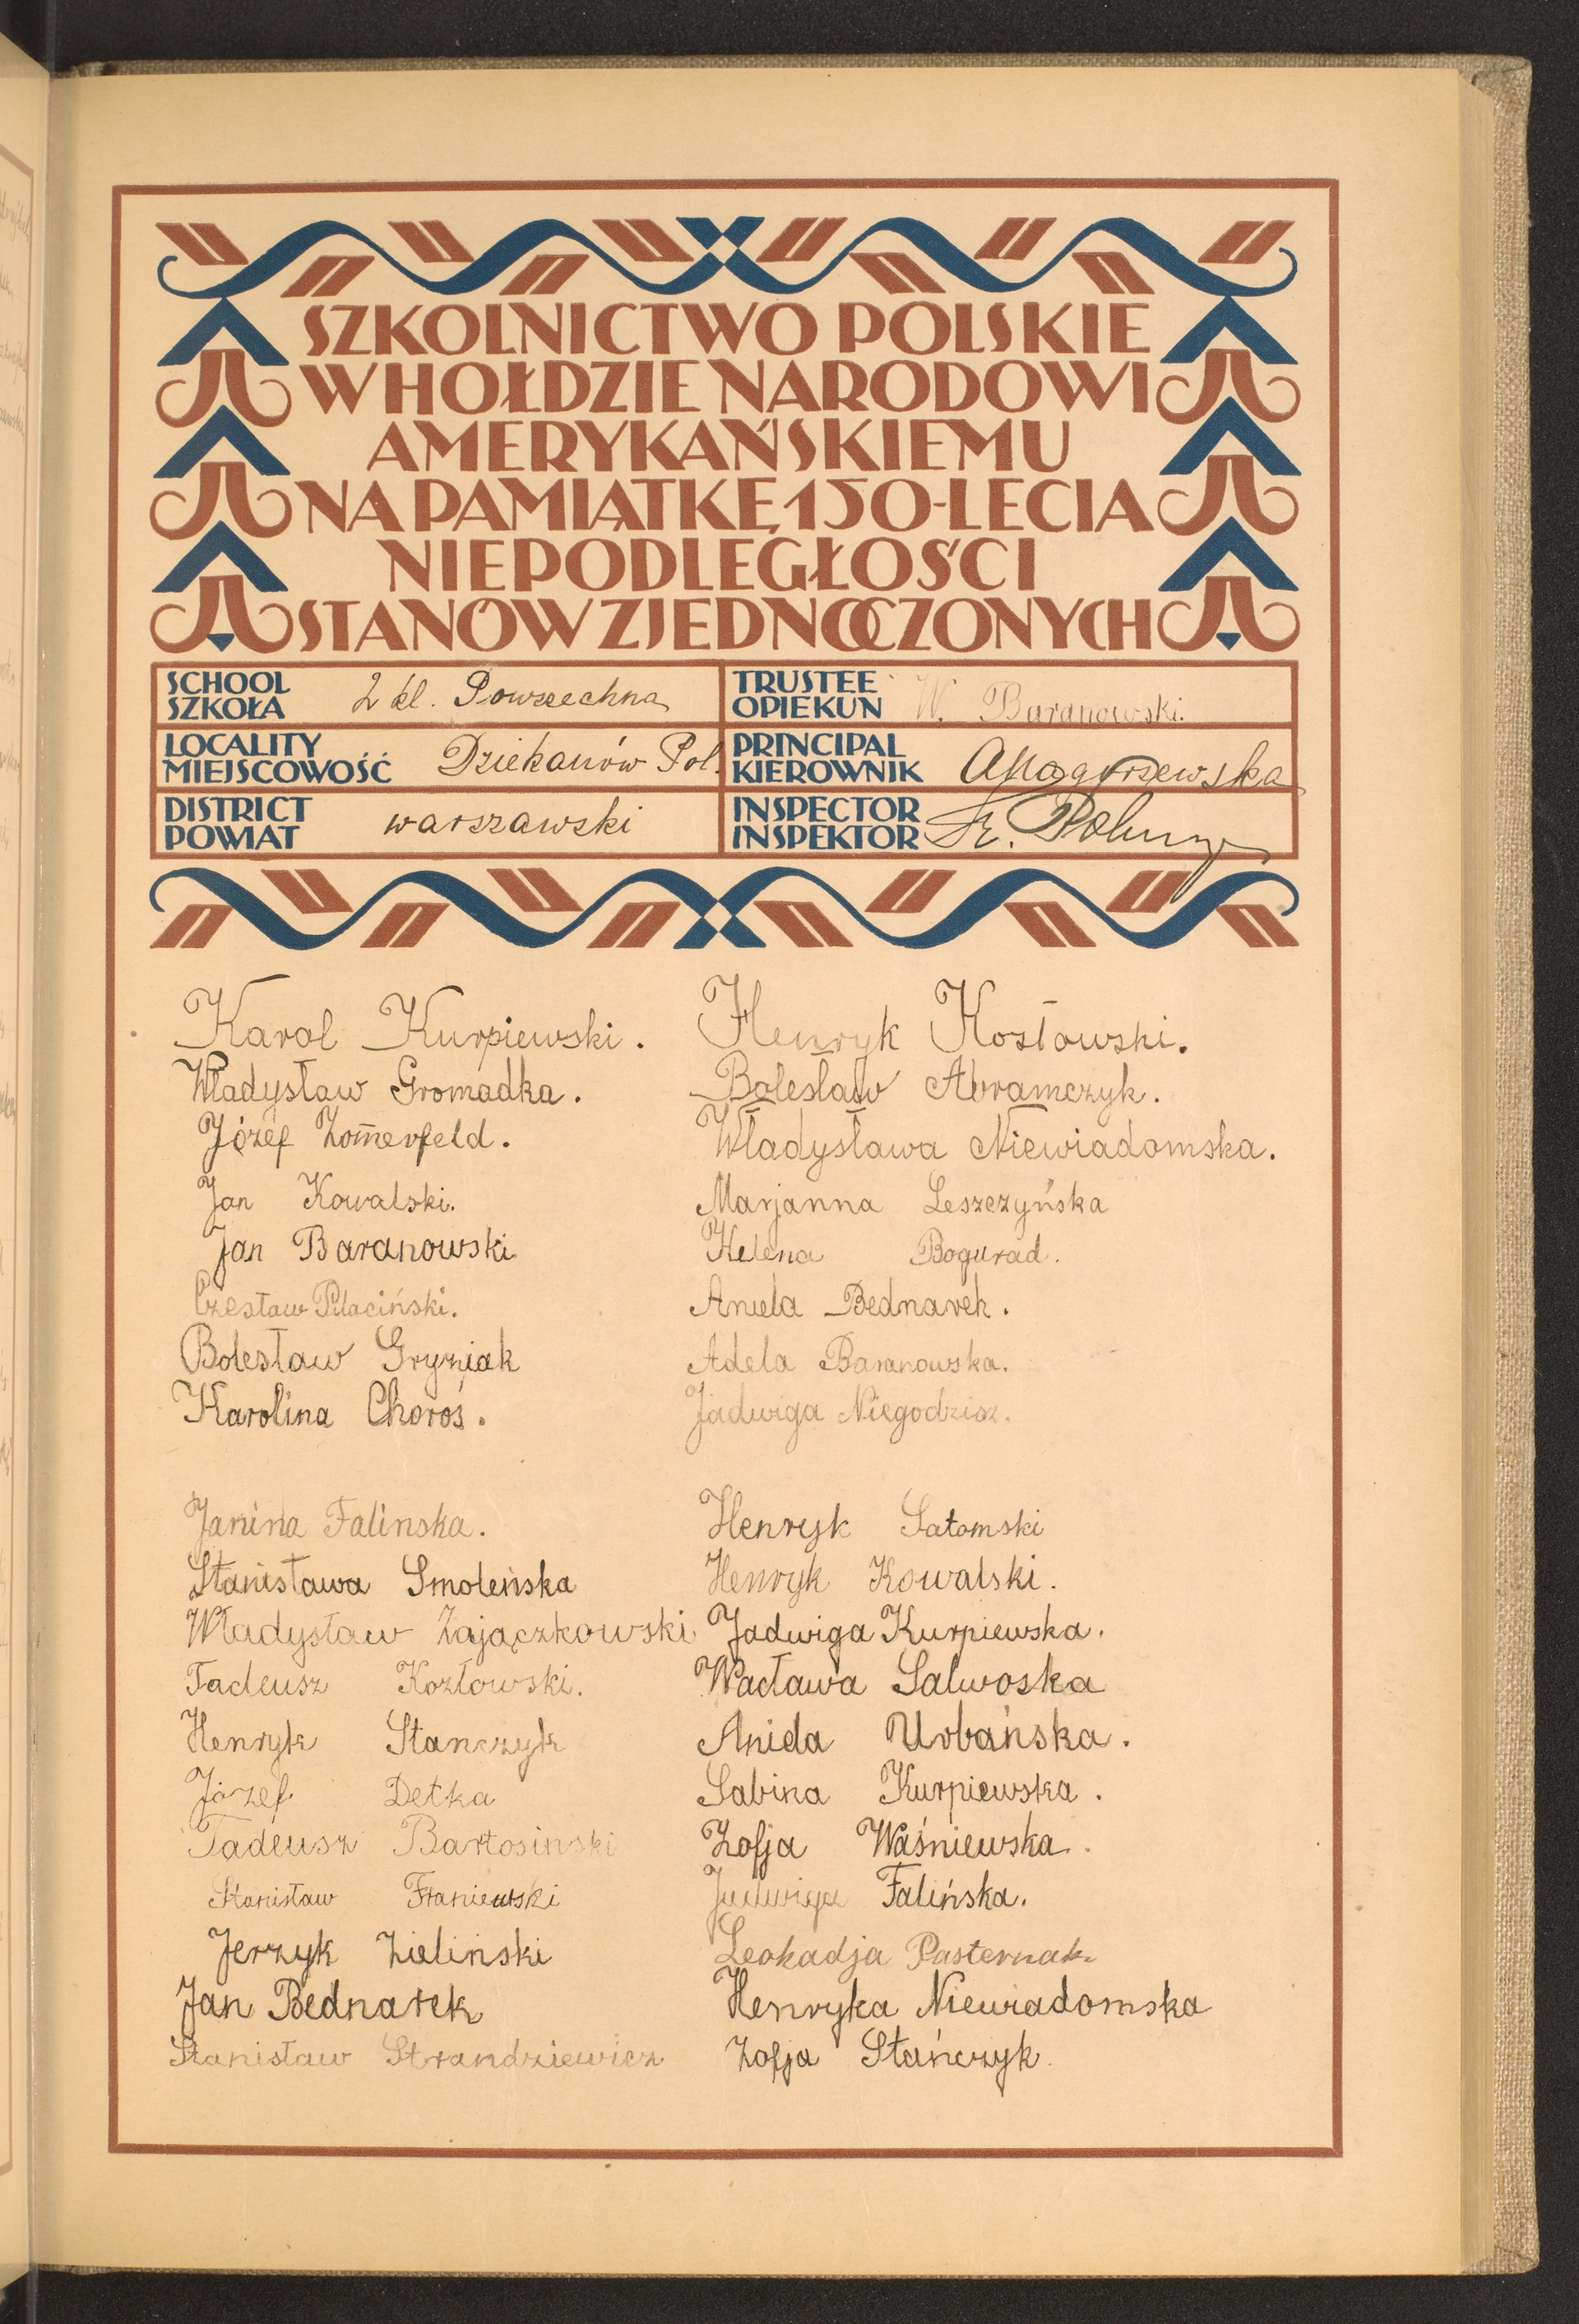 SZKOLNICTWO POLSKIE
W HOŁDZIE NARODOWI
AMERYKAŃSKIEMU
NA PAMIĄTKĘ 150-LECIA
NIEPODLEGŁOŚCI
STANÓW ZJEDNOCZONYCH
SCHOOL
SZKOŁA
2 kl. Powszechna
TRUSTEE
OPIEKUN
W. Baranowski.
LOCALITY
MIEJSCOWOŚĆ
Dziekanów Pol.
PRINCIPAL
KIEROWNIK
DISTRICT
POWIAT
warszawski
INSPECTOR
INSPEKTOR
Karol Kurpiewski.
Władysław Gromadka.
Józef Zomerfeld.
Jan Kowalski.
Jan Baranowski
Czesław Pilaciński.
Bolesław Gryziak
Karolina Choroś.
Henryk Kosłowski.
Bolesław Abramczyk.
Władysława Niewiadomska.
Marjanna Leszczyńska
Helena Bogurad.
Aniela Bednarek.
Adela Baranowska.
Jadwiga Niegodzisz.
Janina Falinska.
Stanisława Smoleńska
Władysław Zajączkowski
Tadeusz Kozłowski.
Henryk Stanczyk
Józef Detka
Tadeusz Bartosinski
Stanisław Franiewski
Jerzyk Zieliński
Jan Bednarek
Stanisław Strandziewicz
Henryk Satomski
Henryk Kowalski.
Jadwiga Kurpiewska.
Wacława Salwoska
Anida Urbańska.
Sabina Kurpiewska.
Zofja Waśniewska.
Jadwiga Falińska.
Leokadja Pasternak
Henryka Niewiadomska
Zofja Stańczyk.